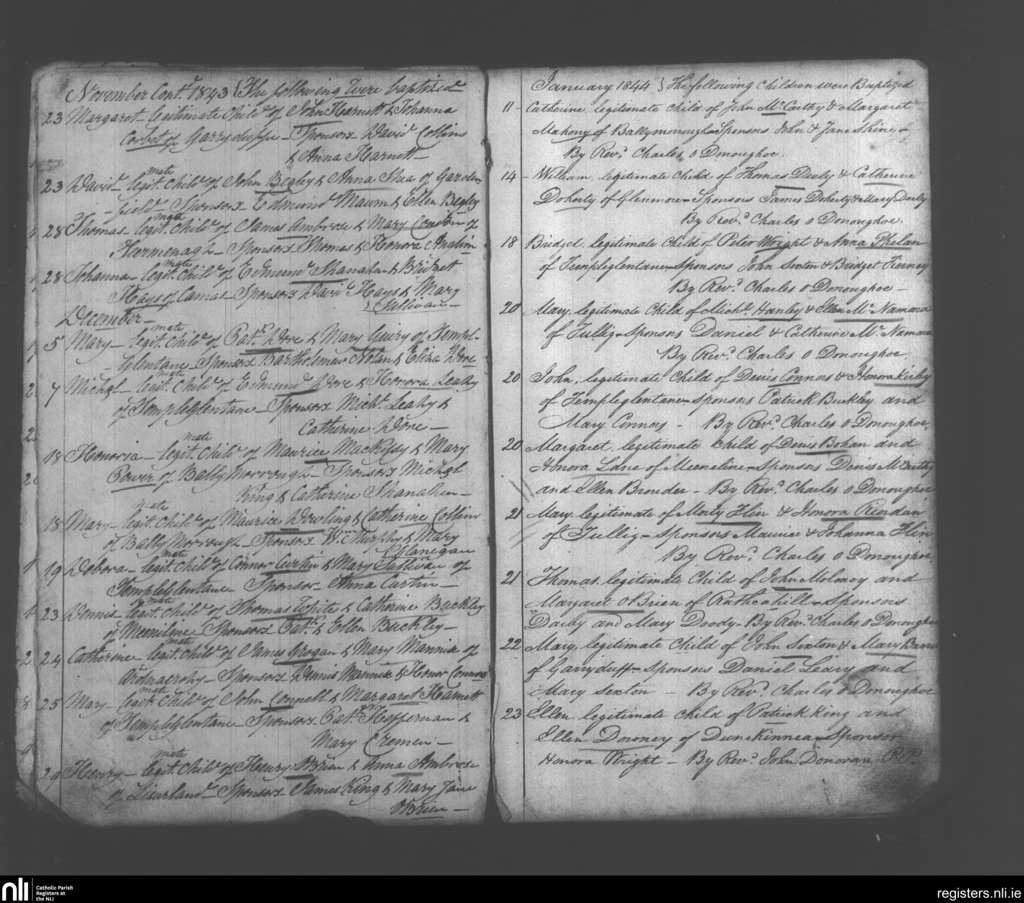 November Cont.d 1843 The following were baptized
23 Margaret legitimate Child of John Harnett & Johanna
Corbet of Garryduffe - Sponsors David Collins
& Anna Harnett -
23 David - legitmate Child of John Begley & Anna Shea of Garden
field - Sponsors Edmund & Ellen Begley
28 Thomas - legitmate Child of James Ambrose & Mary of
Sponsors Thomas & Honora
28 Johanna - legitmate Child of Edmund Shanahan & Bridget
Hays of Camas Sponsors David Hays & Mary
Sullivan -
December -
5 Mary - legitmate Child of Patk Dore & Mary Guiry of Templ-
glentane - Sponsors Bartholomew Nolan & Eliza Dore
7 Michal - legitmate Child of Edmund Dore & Honora Leahy
of Templeglentane - Sponsors Michl Leahy &
Catherine Dore -
18 Honorra - legitmate Child of Maurice & Mary
Power of Ballymorrough - Sponsors Michal
King & Catherine Shanahan -
18 Mary - legitmate Child of Maurice Dowling & Catherine Collins
of Ballymorrough - Sponsors Wm Murphy & Mary
Flanigan
19 Debora - legitmate Child of Connor Curtin & Mary Sullivan of
Templeglentane Sponsor - Anna Curtin -
23 Dennis - legitmate Child of Thomas & Catherine Buckley
of Meenilyne Sponsors Patk & Ellen Buckley -
24 Catherine - legitmate Child of James Grogan & Mary of
Sponsors Dennis & Honor Connors
25 Mary - legitmate Child of John Connell & Margaret Harnett
of Templeglentane Sponsors Patk Heffernan &
Mary Cremen -
29 Henry - legitmate Child of Henry OBrien & Anna Ambrose
of Sponsors James King & Mary Jane
OBrien -
January 1844 The following Children were Baptized
11 - Catherine, legitimate child of John McCarthy & Margaret
Mahony of Ballymorrough - Sponsors John & Jane Shine -
By Revd Charles O Donoughoe.
14 - William, legitimate Child of Thomas Darby & Catherine
Doherty of Glenmore - Sponsors James Doherty & Mary Darby
By Revd Charles O Donoughoe.
18 Bridget, legitimate Child of Peter Wright & Anna Phelan
of Templeglentane - Sponsors John Sexton & Bridget Tierney
By Revd Charles O Donoughoe -
20 Mary, legitimate Child of Michl. Hanley & Ellen McNamara
of Tullig - Sponsors Daniel & Catherine McNamara
By Revd Charles O Donoughoe.
20 John, legitimate Child of Denis Connors & Honora Kirby
of Templeglentane - Sponsors Patrick Buckley and
Mary Connors - By Revd Charles O Donoughoe,
20 Margaret, legitimate Child of Denis Bohan and
Honora Lane of Meenoline - Sponsors Denis McCarthy
and Ellen Browder - By Revd Charles O Donoughoe
21 Mary, legitimate of Morty Hin & Honora Riordan
of Tullig - Sponsors Maurice & Johanna Hin
By Revd Charles O Donoughoe.
21 Thomas, legitimate Child of John Moloney and
Margaret O Brien of Rathcahill - Sponsors
Darby and Mary Doody - By Revd Charles O Donoughoe
22 Mary, legitimate Child of John Sexton & Mary
of Garryduff - Sponsors Daniel Leary and
Mary Sexton - By Revd. Charles O Donoughoe
23 Ellen, legitimate child of Patrick King and
Ellen Downey of Dunskinnea - Sponsor
Honora Wright - By Revd John Donovan P.P.
nli Catholic Parish
Registers at
the NLI
registers.nli.ie